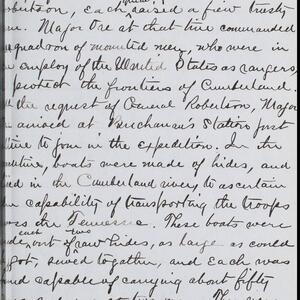 Robertson, each raised a few trusty
men. Major Ore at that time commanded
squadron of mounted men, who were in
employ of the United States as rangers,
protect the frontiers of Cumberland.
the request of General Robertson, Major
arrived at Buchanan's Station just
time to join in the expedition. In the
boats were made of hides, and
tried in the Cumberland river, to ascertain
capability of transporting the troops
across the Tennessee. These boats were
each two
made, out of raw hides, as large as could
got, sewed together, and each was
capable of carrying about fifty